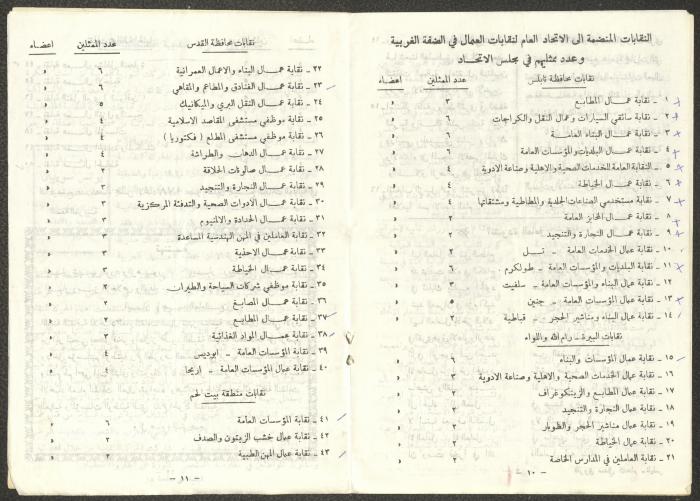 النقابات المنضمة الى الاتحاد العام لنقابات العمال في الضفة الغربية
وعدد ممثليهم في مجلس الاتحاد
نقابات محافظة نابلس عدد الممثلين أعضاء
١ - نقابة عمال المطابع ٣ »
٢ - نقابة سائقي السيارات وعمال النقل والكراجات ٦ »
٣ - نقابة عمال البناء العامة ٦ »
٤ - نقابة عمال البلديات والمؤسسات العامة ٦ »
٥ - النقابة العامة للخدمات الصحية والاهلية وصناعة الادوية ٤ »
٦ - نقابة عمال الخياطة ٤ »
٧ - نقابة مستخدمي الصناعات الجلدية والمطاطية ومشتقاتها ٤ »
٨ - نقابة عمال المخابز العامة ٢ »
٩ - نقابة عمال النجارة والتنجيد ٢ »
١٠ - نقابة عمال الخدمات العامة - تل ٢ »
١١ - نقابة البلديات والمؤسسات العامة - طولكرم ٦ »
١٢ - نقابة عمال البناء والمؤسسات العامة - سلفيت ٢ »
١٣ - نقابة عمال المؤسسات العامة - جنين ٥ »
١٤ - نقابة عمال البناء ومناشير الحجر - قباطية ٢ »
نقابات البيرة - رام الله واللواء
١٥ - نقابة عمال المؤسسات والبناء ٦ »
١٦ - نقابة عمال الخدمات الصحية والاهلية وصناعة الادوية ٤ »
١٧ - نقابة عمال المطابع والزينكوغراف ٢ »
١٨ - نقابة عمال النجارة والتنجيد ٢ »
١٩ - نقابة عمال مناشير الحجر والطوبار ٢ »
٢٠ - نقابة عمال الخياطة ٢ »
٢١ - نقابة العاملين في المدارس الخاصة ٢ »
- ١٠ -
نقابات محافظة القدس عدد الممثلين اعضاء
٢٢ - نقابة عمال البناء والاعمال العمرانية ٦ »
٢٣ - نقابة عمال الفنادق والمطاعم والمقاهي ٦ »
٢٤ - نقابة عمال النقل البري والميكانيك ٥ »
٢٥ - نقابة موظفي مستشفى المقاصد الاسلامية ٤ »
٢٦ - نقابة موظفي مستشفى المطلع ( فكتوريا ) ٤ »
٢٧ - نقابة عمال الدهان والطراشة ٤ »
٢٨ - نقابة عمال صالونات الحلاقة ٢ »
٢٩ - نقابة عمال النجارة والتنجيد ٣ »
٣٠ - نقابة عمال الادوات الصحية والتدفئة المركزية ٣ »
٣١ - نقابة عمال الحدادة والالمنيوم ٣ »
٣٢ - نقابة العاملين في المهن الهندسية المساعدة »
٣٣ - نقابة عمال الاحذية ٣ »
٣٤ - نقابة عمال الخياطة ٣ »
٣٥ - نقابة موظفي شركات السياحة والطيران ٢ »
٣٦ - نقابة عمال المصابغ ٢ »
٣٧ - نقابة عمال المطابع ٢ »
٣٨ - نقابة عمال المواد الغذائية ٣ »
٣٩ - نقابة المؤسسات العامة - ابوديس ٤ »
٤٠ - نقابة عمال المؤسسات العامة - اريحا ٤ »
نقابات منطقة بيت لحم
٤١ - نقابة المؤسسات العامة ٦ »
٤٢ - نقابة عمال خشب الزيتون والصدف ٢ »
٤٣ - نقابة عمال المهن الطبية ٣ »
- ١١ -